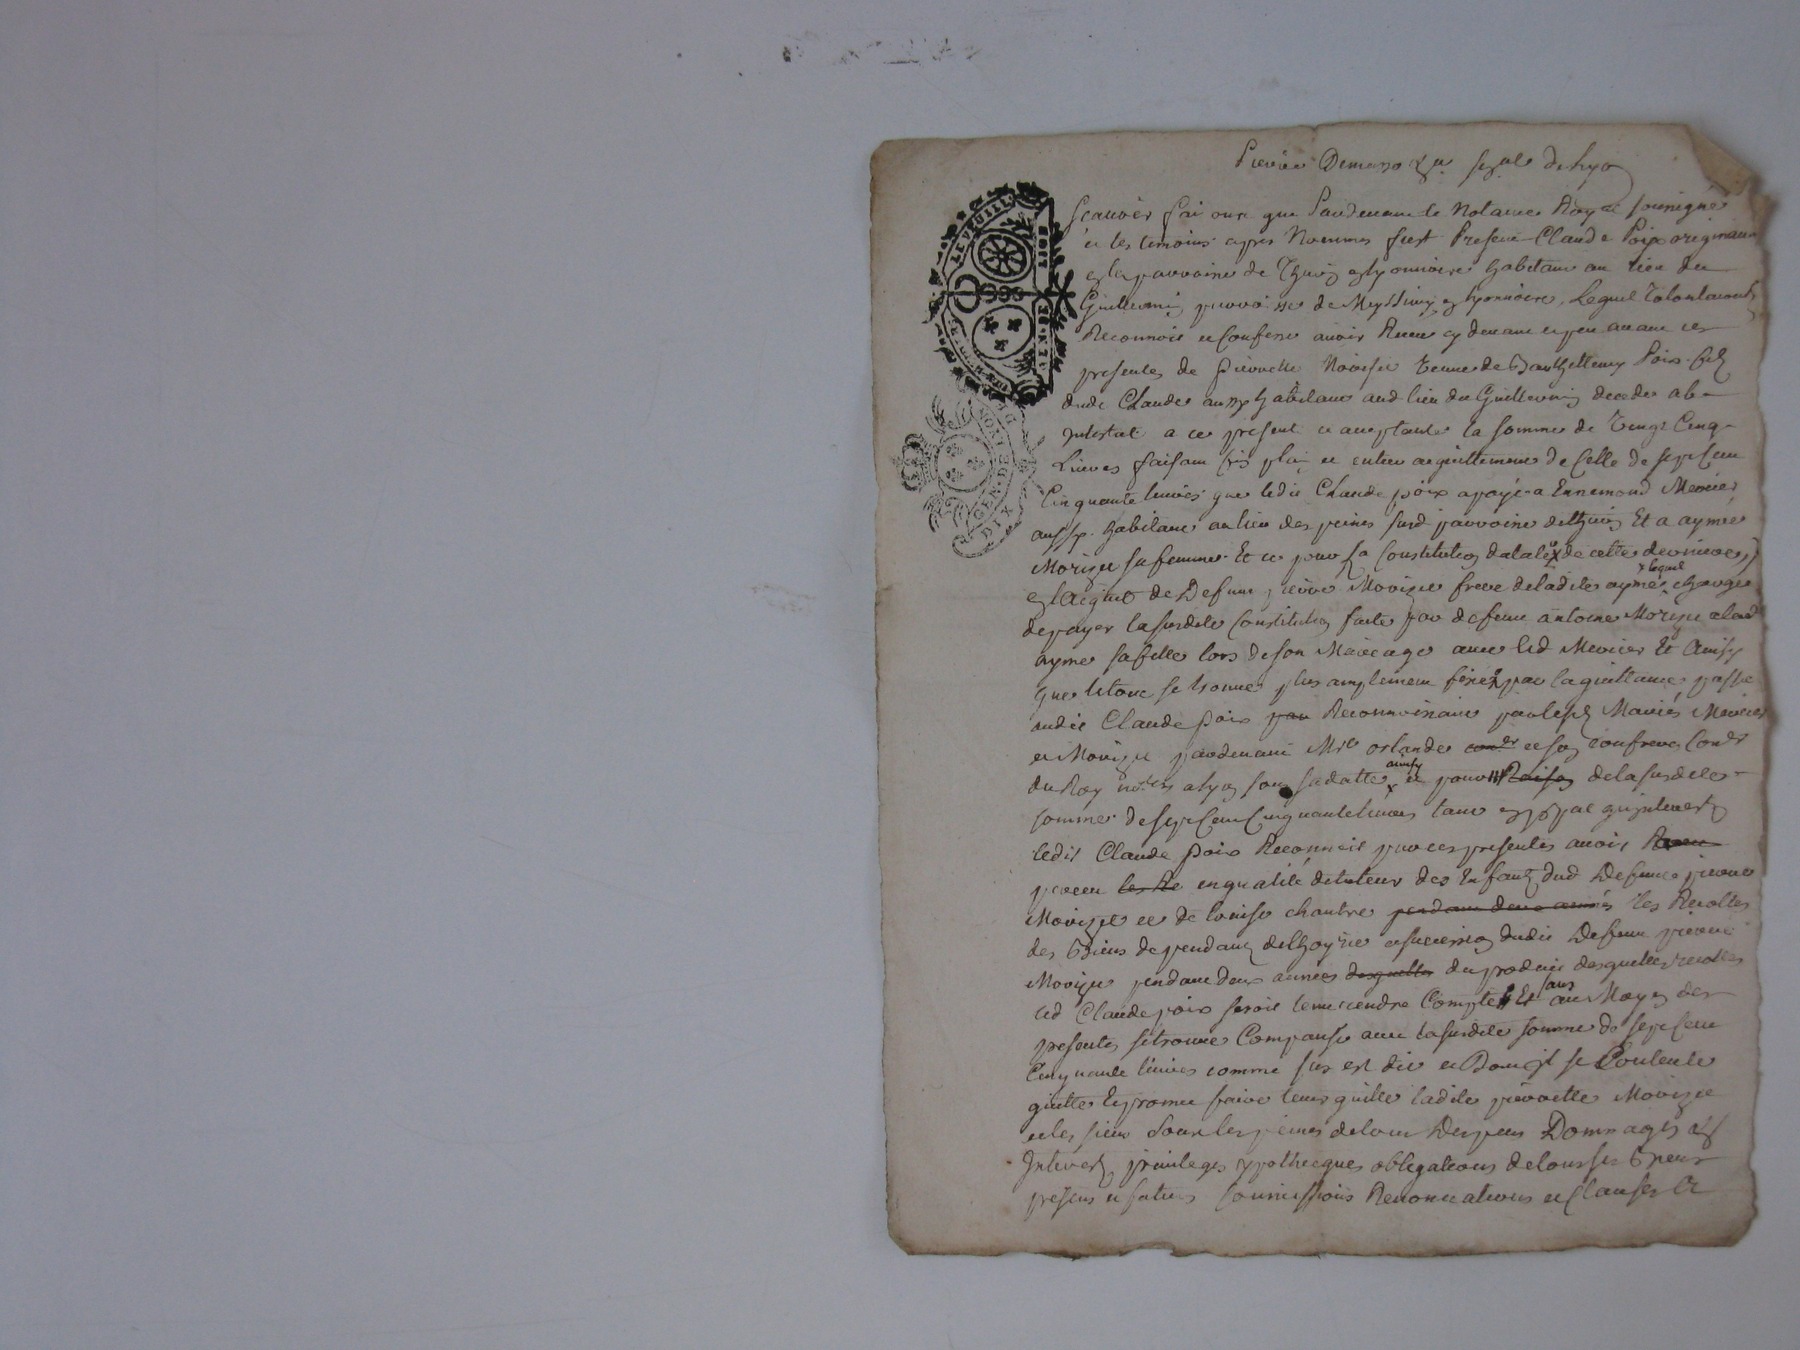 Pierre
Scavoir fai ons que Pardevant le Notaire Royal soussigné
et les temoins apres Nommes fust Present Claude Poix originaire
de la parroisse de Thurins en lyonnois habitant au lieu du
Guillermin parroisse de Messimy en lyonnois, Lequel volontairement
Reconnoit et Confesse avoir Receu cy devant et peu avant ces
presentes de pierrette Morizet veuve de Barthellemy Poix fils
dudit Claude aussy habitant aud lieu du Guillermin decedé ab-
intestat a ce present et acceptante la somme de Vingt Cinq
Livres faisant fin et entier acquittement de Celle de sept Cent
Cinquante livres que ledit Claude poix a payé a Ennemond Mercier
aussy habitant au lieu des susd parroisse de Thurins Et a aymée
Morizet sa femme Et ce pour la Constitution dotale de cette derniere
en l'acquit de Defunt pierre Morizet frere de ladite aymée x lequel chargé
de payer la susdite Constitution faite par defunt antoine Morizet a lad
ayme sa fille lors de son Mariage avec led Mercier Et Ainsy
que le tout se trouve plus amplement par la quittance passée
audit Claude poix par Reconnoissant par lesd Mariés Mercier
et Morizet pardevant Mre orlande et son confrere Coners
du Roy nores a lyon sous sa datte ainsy et pour Raison de la susdite
somme de sept Cent Cinquante livres tant en ppal qu'interests
ledit Claude poix Reconnoit par ces presentes avoir Receu
perceu en qualité de tuteur des Enfants dud Defunt pierre
Morizet et de louise chambre pendant deux années les Recoltes
des Biens dependants de l'hoyrie et succession dudit Defunt pierre
Morizet pendant deux années desquelles du produit desquelles recoltes
led Claude poix seroit tenu rendre Compte Et au Moyen des
presentes se trouve Compensé avec la susdite somme de sept Cent
Cinquante livres comme sus est dit et Dont il se Contente
quitte Et promet faire tenir quitte ladite pierrette Morizet
et les siens sous les peines de tous Despens Dommages et
Interests privileges ypotheques obligations de tous ses Biens
presens et futurs soumissions Renonciations et Clauses Et
LE FEUILL
HUIT
DIX
GEN DE